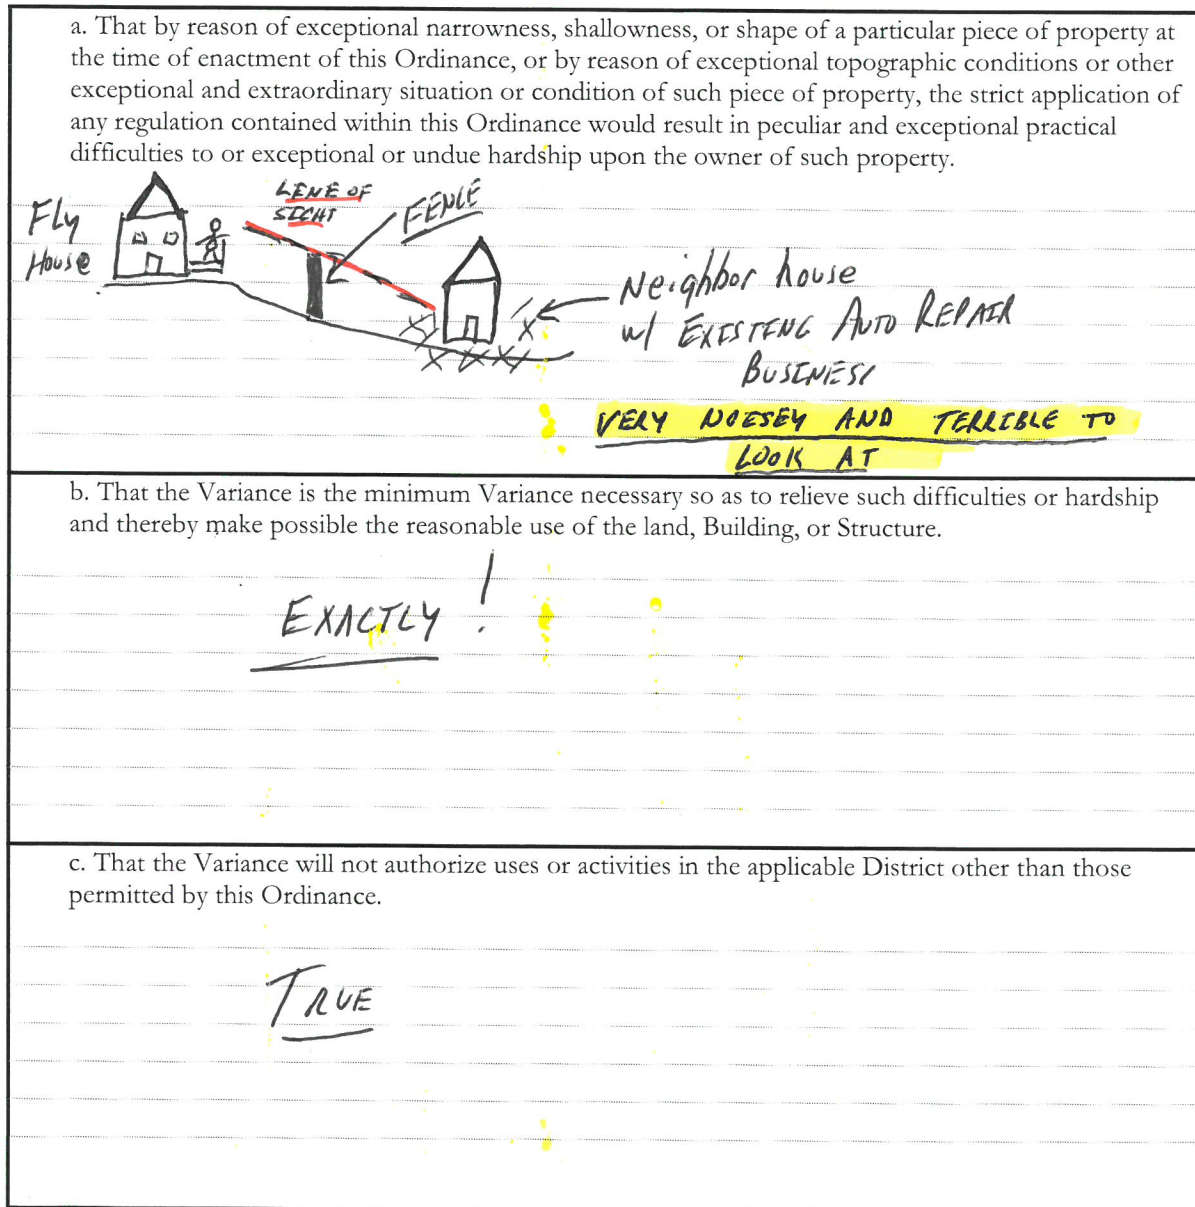 a. That by reason of exceptional narrowness, shallowness, or shape of a particular piece of property at
the time of enactment of this Ordinance, or by reason of exceptional topographic conditions or other
exceptional and extraordinary situation or condition of such piece of property, the strict application of
any regulation contained within this Ordinance would result in peculiar and exceptional practical
difficulties to or exceptional or undue hardship upon the owner of such property.
Fly
House
LINE OF
SIGHT
FENCE
Neighbor house
w/ EXISTING AUTO REPAIR
BUSINESS
VERY NOISEY AND TERRIBLE TO
LOOK AT
b. That the Variance is the minimum Variance necessary so as to relieve such difficulties or hardship
and thereby make possible the reasonable use of the land, Building, or Structure.
EXACTLY!
c. That the Variance will not authorize uses or activities in the applicable District other than those
permitted by this Ordinance.
TRUE